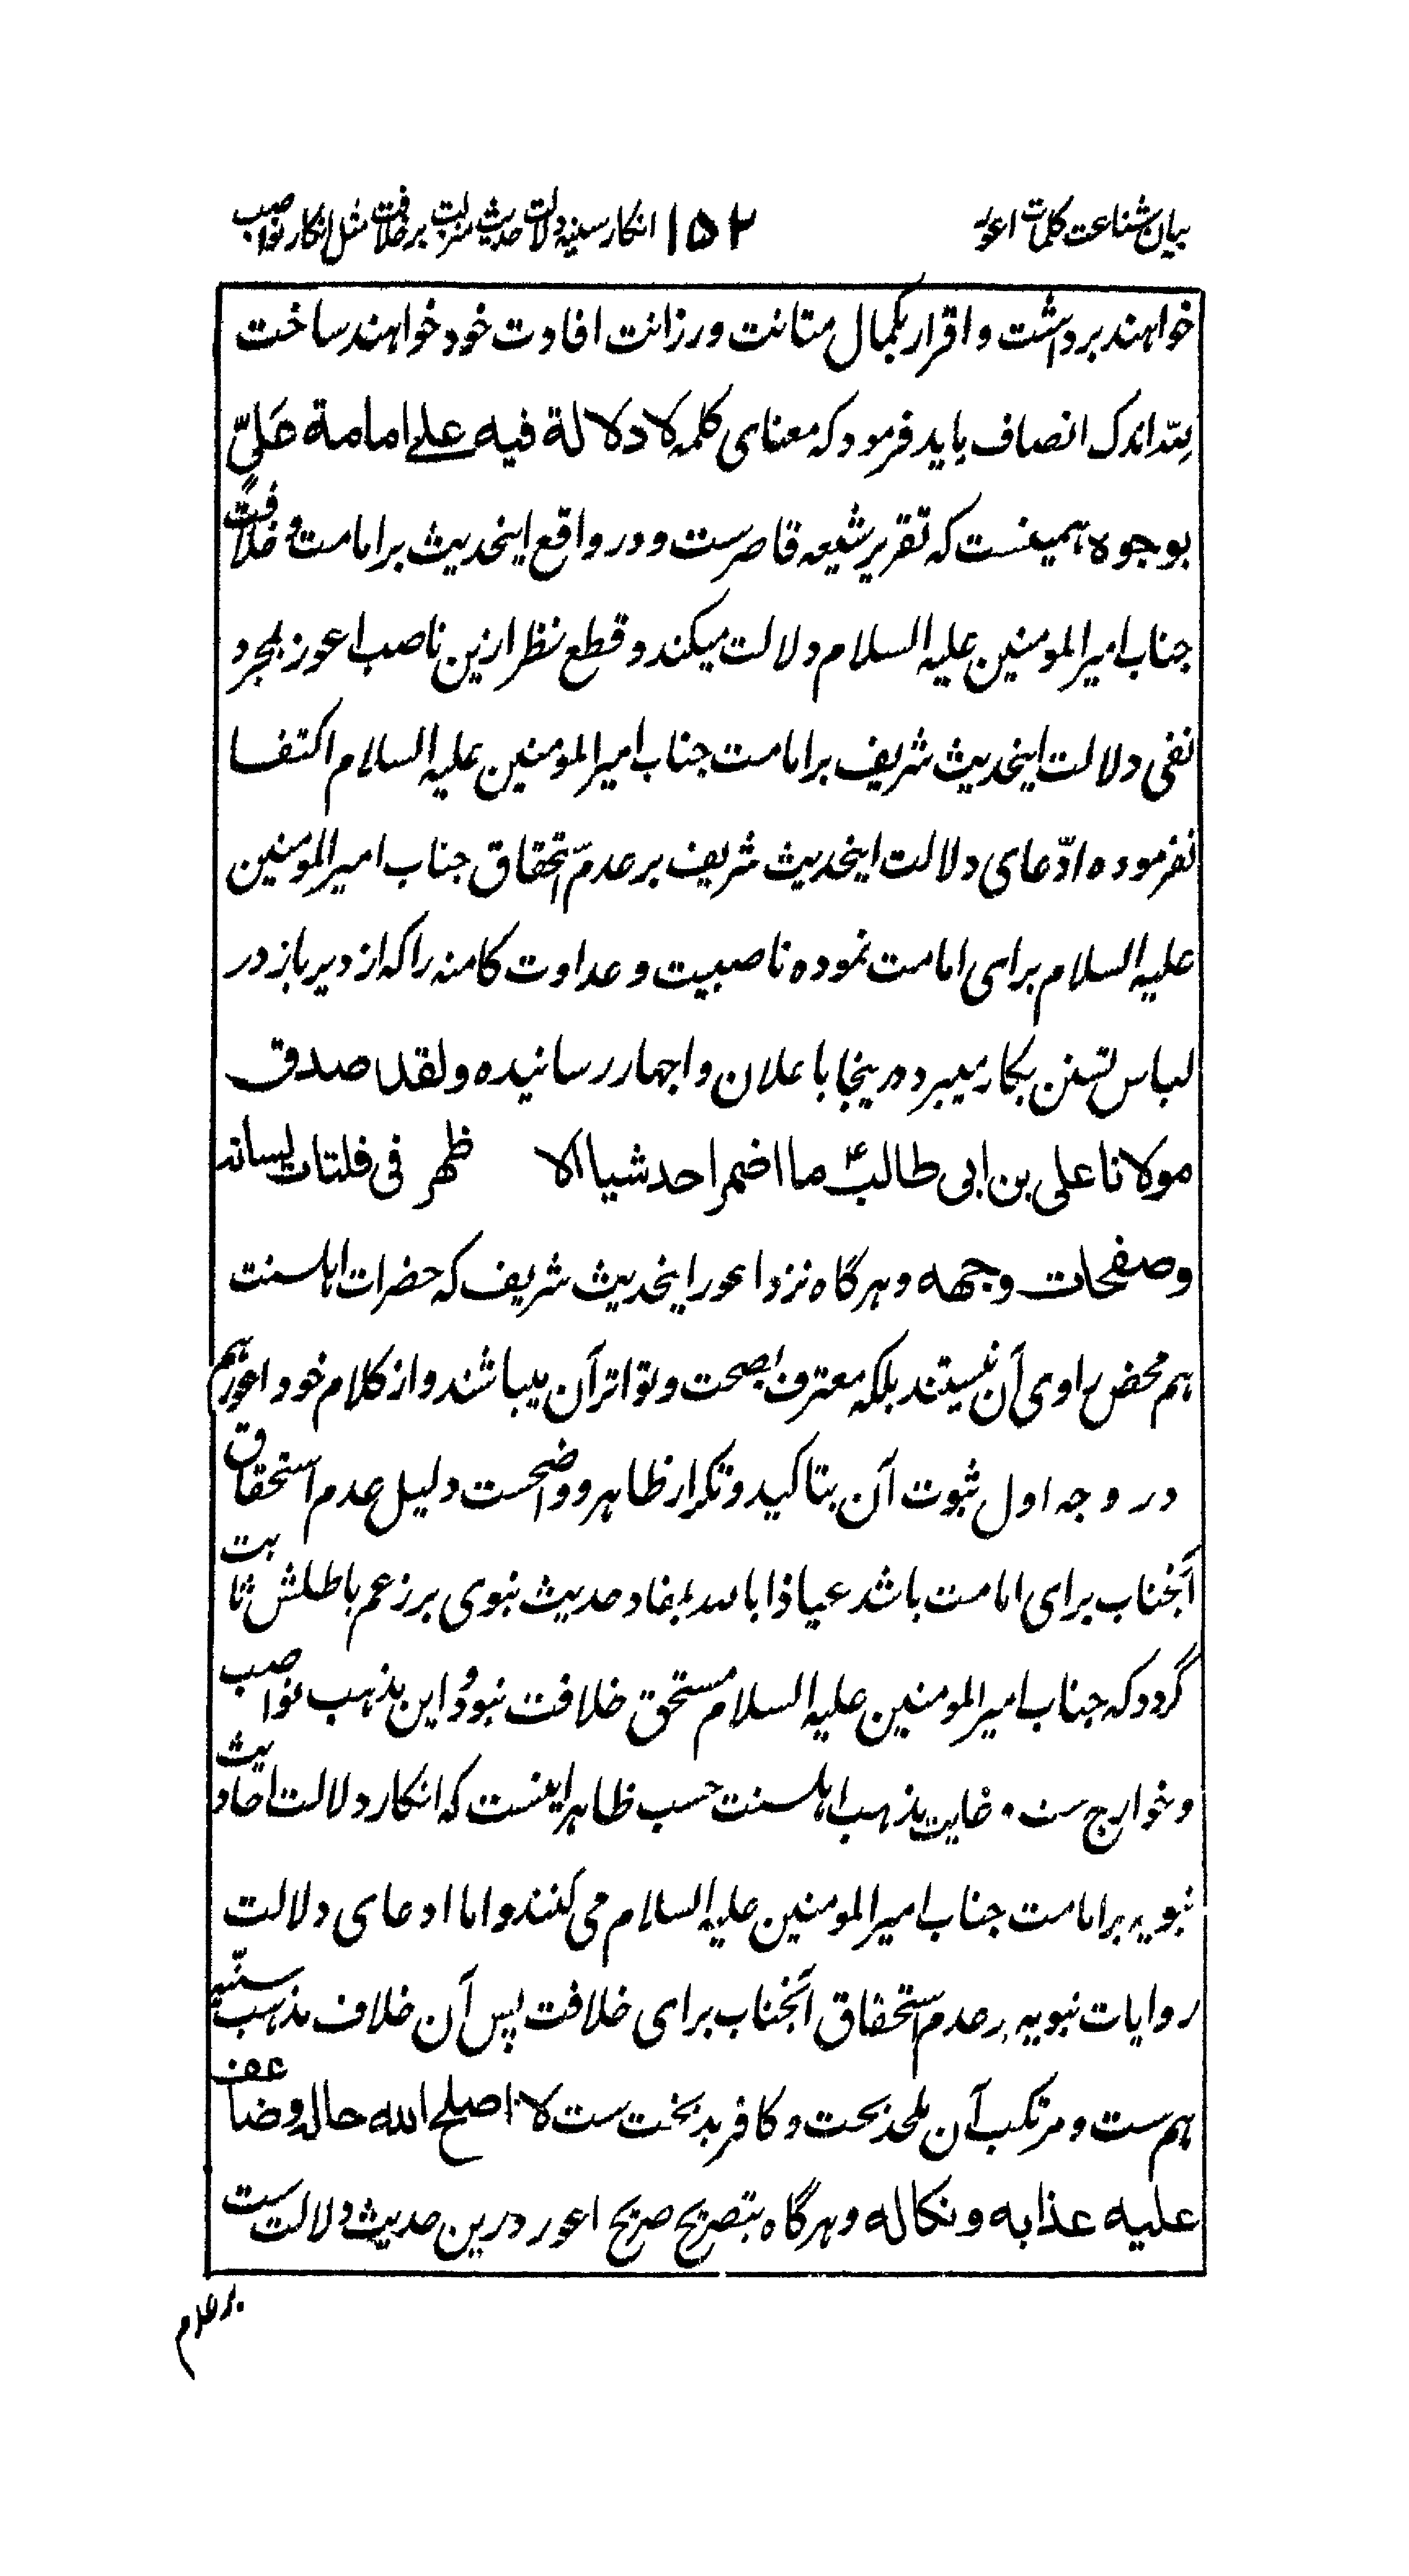 بیان شناعت کلمات اعور ۱۵۲ انکار سنیه دلالت حدیث منزلت بر خلافت مثل انکار نواصب
خواهند برداشت و اقرار بکمال متانت و رزانت افادت خود خواهند ساخت
لله اندک انصاف باید فرمود که معنای کلمه لا دلالة فیه علی امامة علیّ
بوجوه همینست که تقریر شیعه قاصرست و در واقع اینحدیث بر امامت و خلافت
جناب امیر المومنین علیه السلام دلالت میکند و قطع نظر ازین ناصب اعور بمجرد
نفی دلالت اینحدیث شریف بر امامت جناب امیر المومنین علیه السلام اکتفا
نفرموده ادّعای دلالت اینحدیث شریف بر عدم استحقاق جناب امیر المومنین
علیه السلام برای امامت نموده ناصبیت و عداوت کامنه را که از دیر باز در
لباس تسنن بکار میبرد درینجا باعلان و اجهار رسانیده ولقد صدق
مولانا علی بن ابی طالب ع ما اضمر احد شیا الا ظهر فی فلتات لسانه
وصفحات وجهه و هرگاه نزد اعور اینحدیث شریف که حضرات اهلسنت
هم محض راوی آن نیستند بلکه معترف بصحت و تواتر آن میباشند و از کلام خود اعور هم
در وجه اول ثبوت آن بتاکید و تکرار ظاهر و واضحست دلیل عدم استحقاق
آنجناب برای امامت باشد عیاذا بالله بمفاد حدیث نبوی بر زعم باطلش ثابت
گردد که جناب امیر المومنین علیه السلام مستحق خلافت نبود و این مذهب نواصب
و خوارج ست ۰ غایت مذهب اهلسنت حسب ظاهر اینست که انکار دلالت احادیث
نبویه بر امامت جناب امیر المومنین علیه السلام می کنند و اما ادعای دلالت
روایات نبویه بر عدم استحقاق آنجناب برای خلافت پس آن خلاف مذهب سنّیه
هم ست و مرتکب آن ملحد بحت و کافر بدبخت ست لا اصلح الله حاله وضاعف
علیه عذابه ونکاله و هرگاه بتصریح صریح اعور درین حدیث دلالت ست
بر عدم